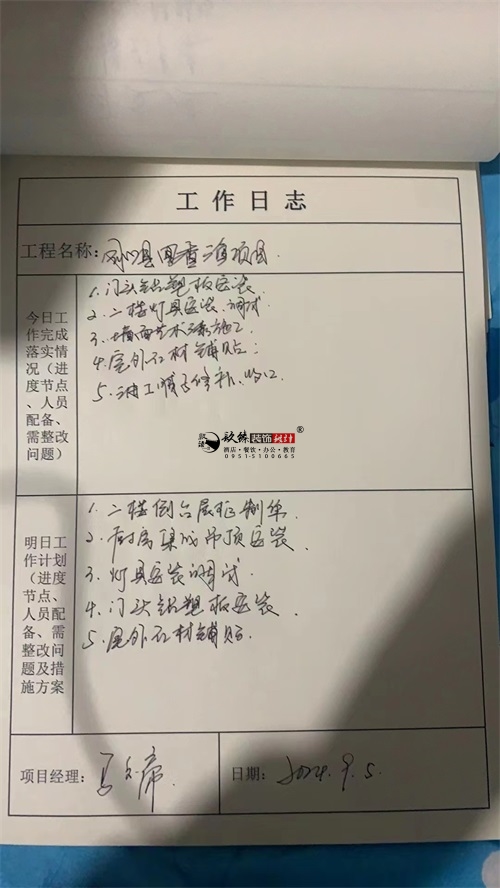 工作日志
工程名称:
今日工作完成落实情况(进度节点、人员配备、需整改问题)
1. 门头铝塑板安装
2. 二楼灯具安装、调试
3. 墙面艺术漆施工
4. 屋外石材铺贴
5. 油工修补、收口
装饰设计
®
酒店·餐饮·办公·教育
0951-5100665
明日工作计划(进度节点、人员配备、需整改问题及措施方案
1. 二楼
2. 厨房集成吊顶安装
3. 灯具安装调试
4. 门头铝塑板安装
5. 屋外石材铺贴
项目经理:
日期: 2024.9.5.